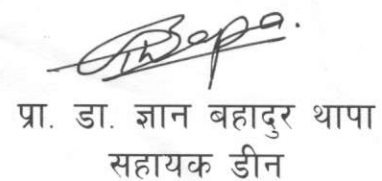 प्रा. डा. ज्ञान बहादुर थापा
सहायक डीन